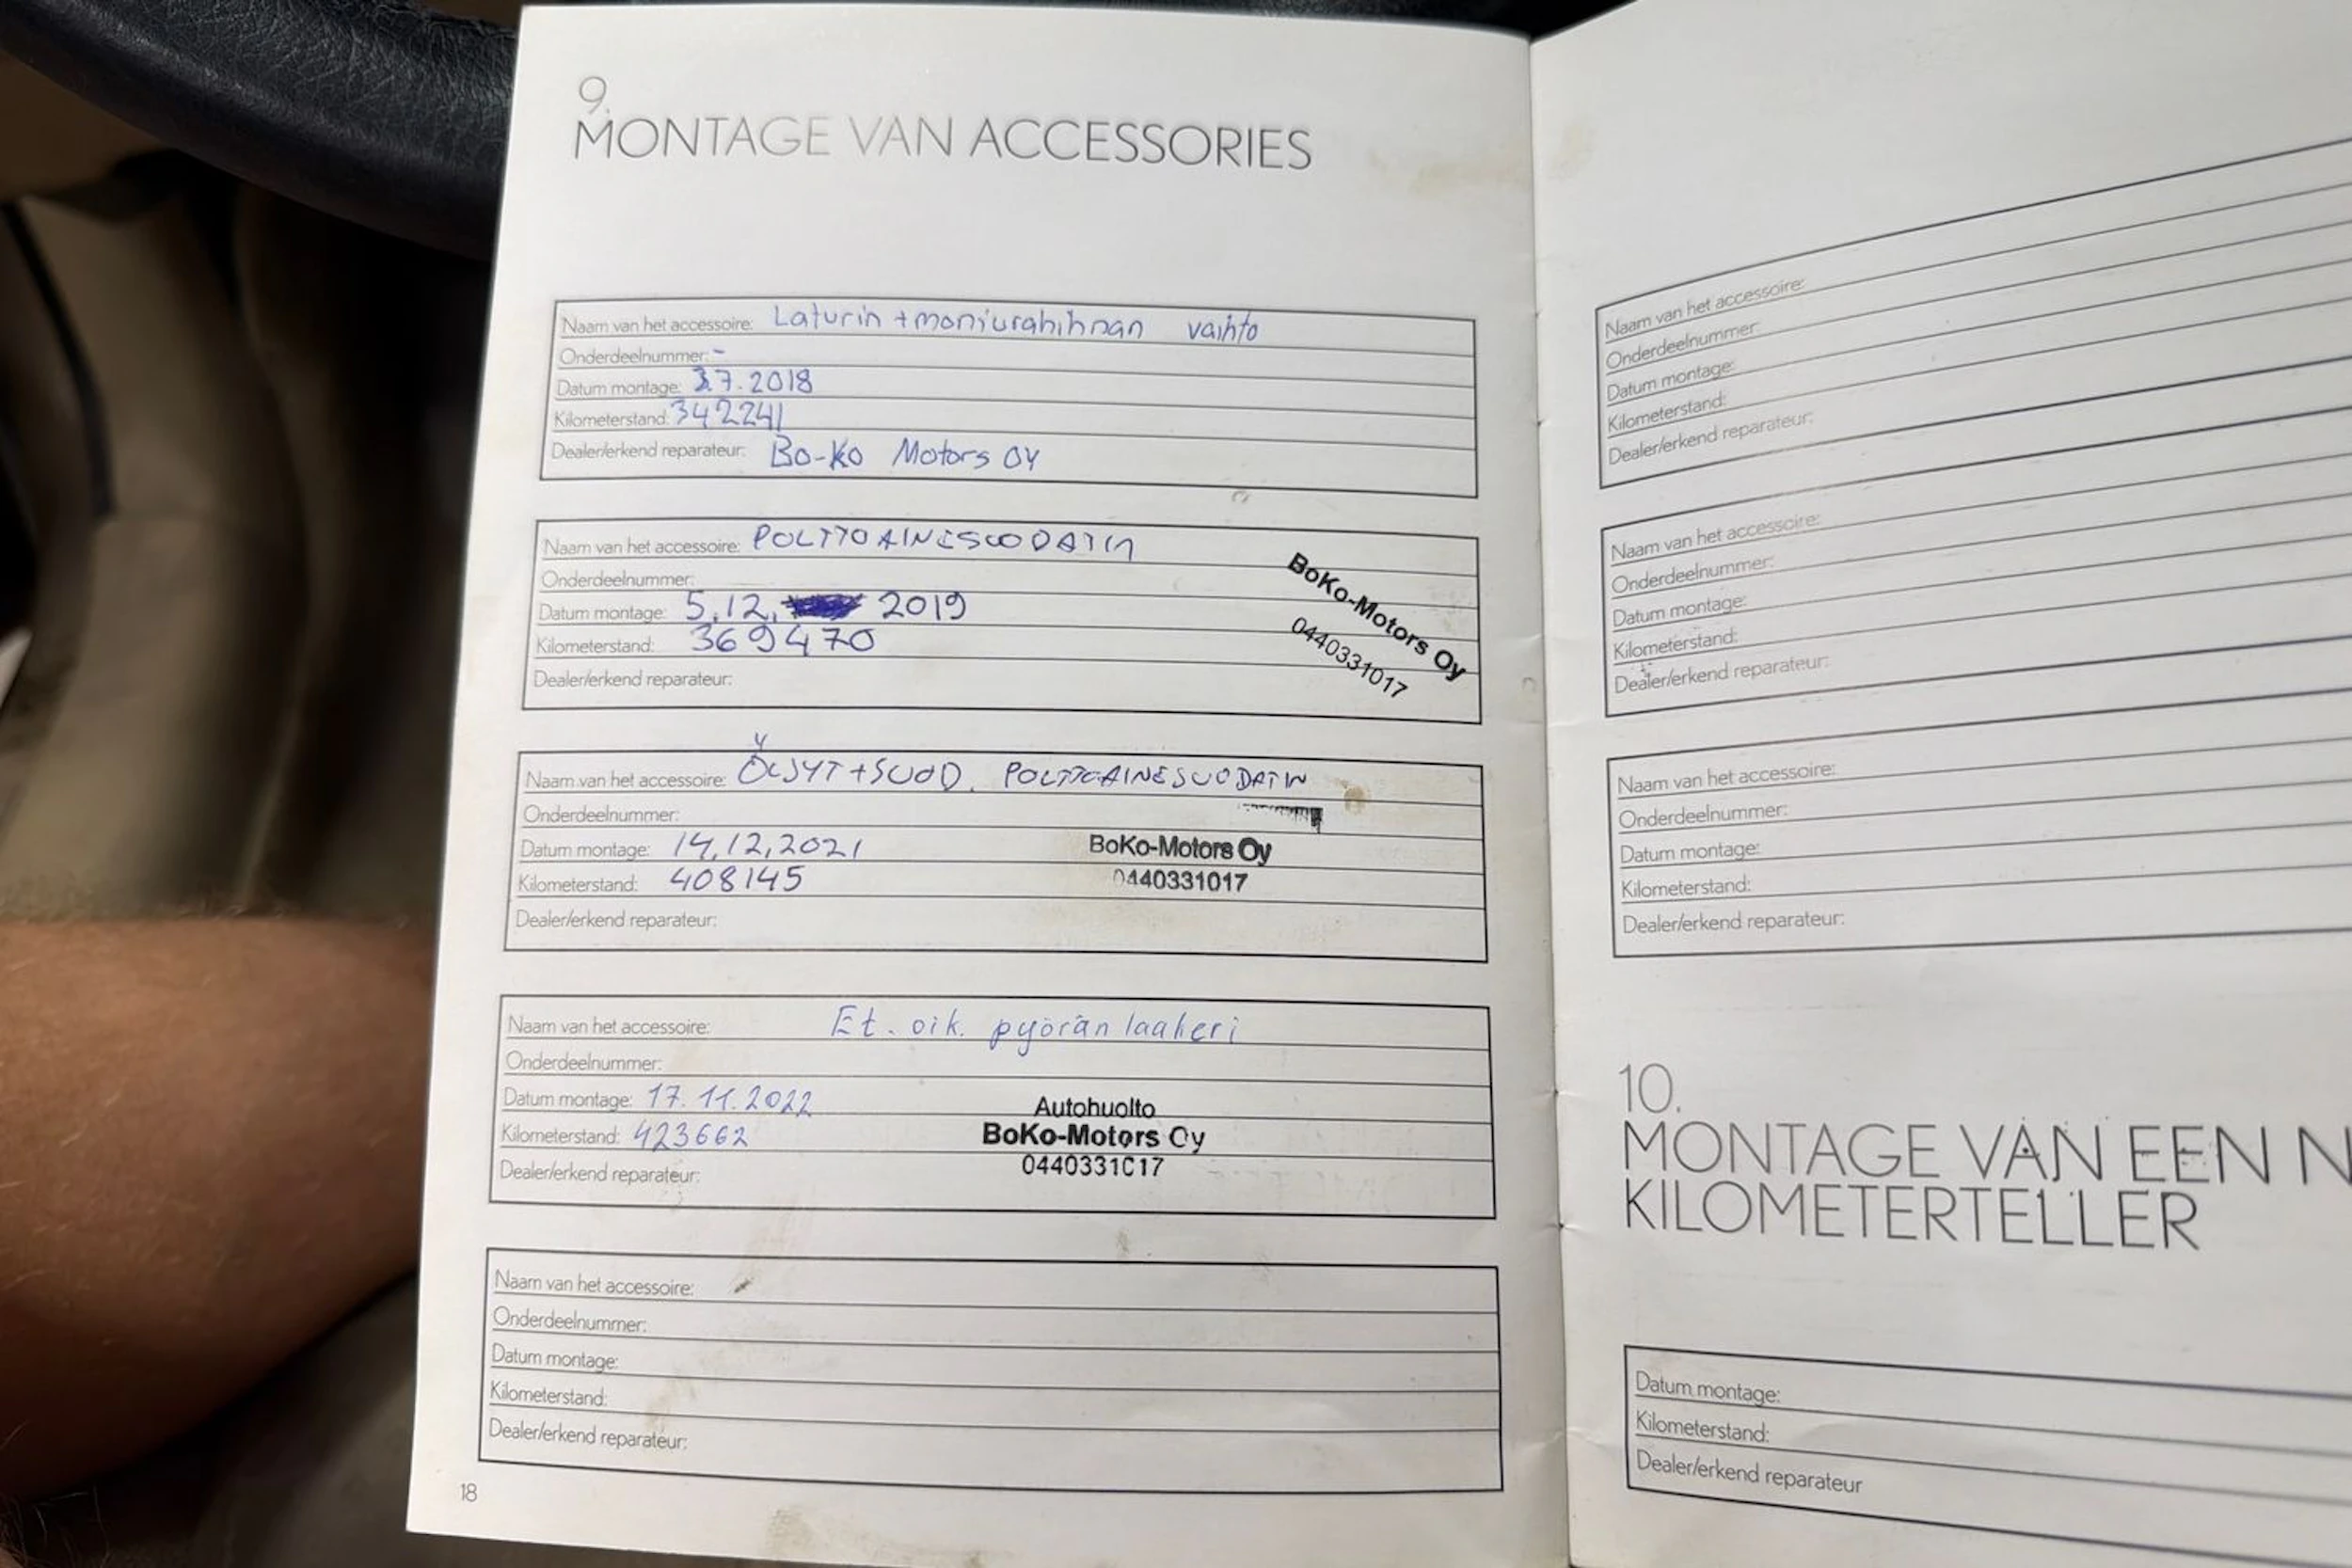 9.
MONTAGE VAN ACCESSORIES
Naam van het accessoire: Laturin + moniurahihnan vaihto
Onderdeelnummer: -
Datum montage: 3.7.2018
Kilometerstand: 342241
Dealer/erkend reparateur: Bo-Ko Motors OY
Naam van het accessoire: POLTTOAINESUODATIN
Onderdeelnummer:
Datum montage: 5.12. 2019
Kilometerstand: 369470
Dealer/erkend reparateur:
BoKo-Motors Oy
0440331017
Naam van het accessoire: ÖLJYT + SUOD. POLTTOAINESUODATIN
Onderdeelnummer:
Datum montage: 14.12.2021
Kilometerstand: 408145
Dealer/erkend reparateur:
BoKo-Motors Oy
0440331017
Naam van het accessoire: Et. oik. pyörän laakeri
Onderdeelnummer:
Datum montage: 17.11.2022
Kilometerstand: 423662
Dealer/erkend reparateur:
Autohuolto
BoKo-Motors Oy
0440331017
Naam van het accessoire:
Onderdeelnummer:
Datum montage:
Kilometerstand:
Dealer/erkend reparateur:
18
Naam van het accessoire:
Onderdeelnummer:
Datum montage:
Kilometerstand:
Dealer/erkend reparateur:
Naam van het accessoire:
Onderdeelnummer:
Datum montage:
Kilometerstand:
Dealer/erkend reparateur:
Naam van het accessoire:
Onderdeelnummer:
Datum montage:
Kilometerstand:
Dealer/erkend reparateur:
10.
MONTAGE VAN EEN N
KILOMETERTELLER
Datum montage:
Kilometerstand:
Dealer/erkend reparateur